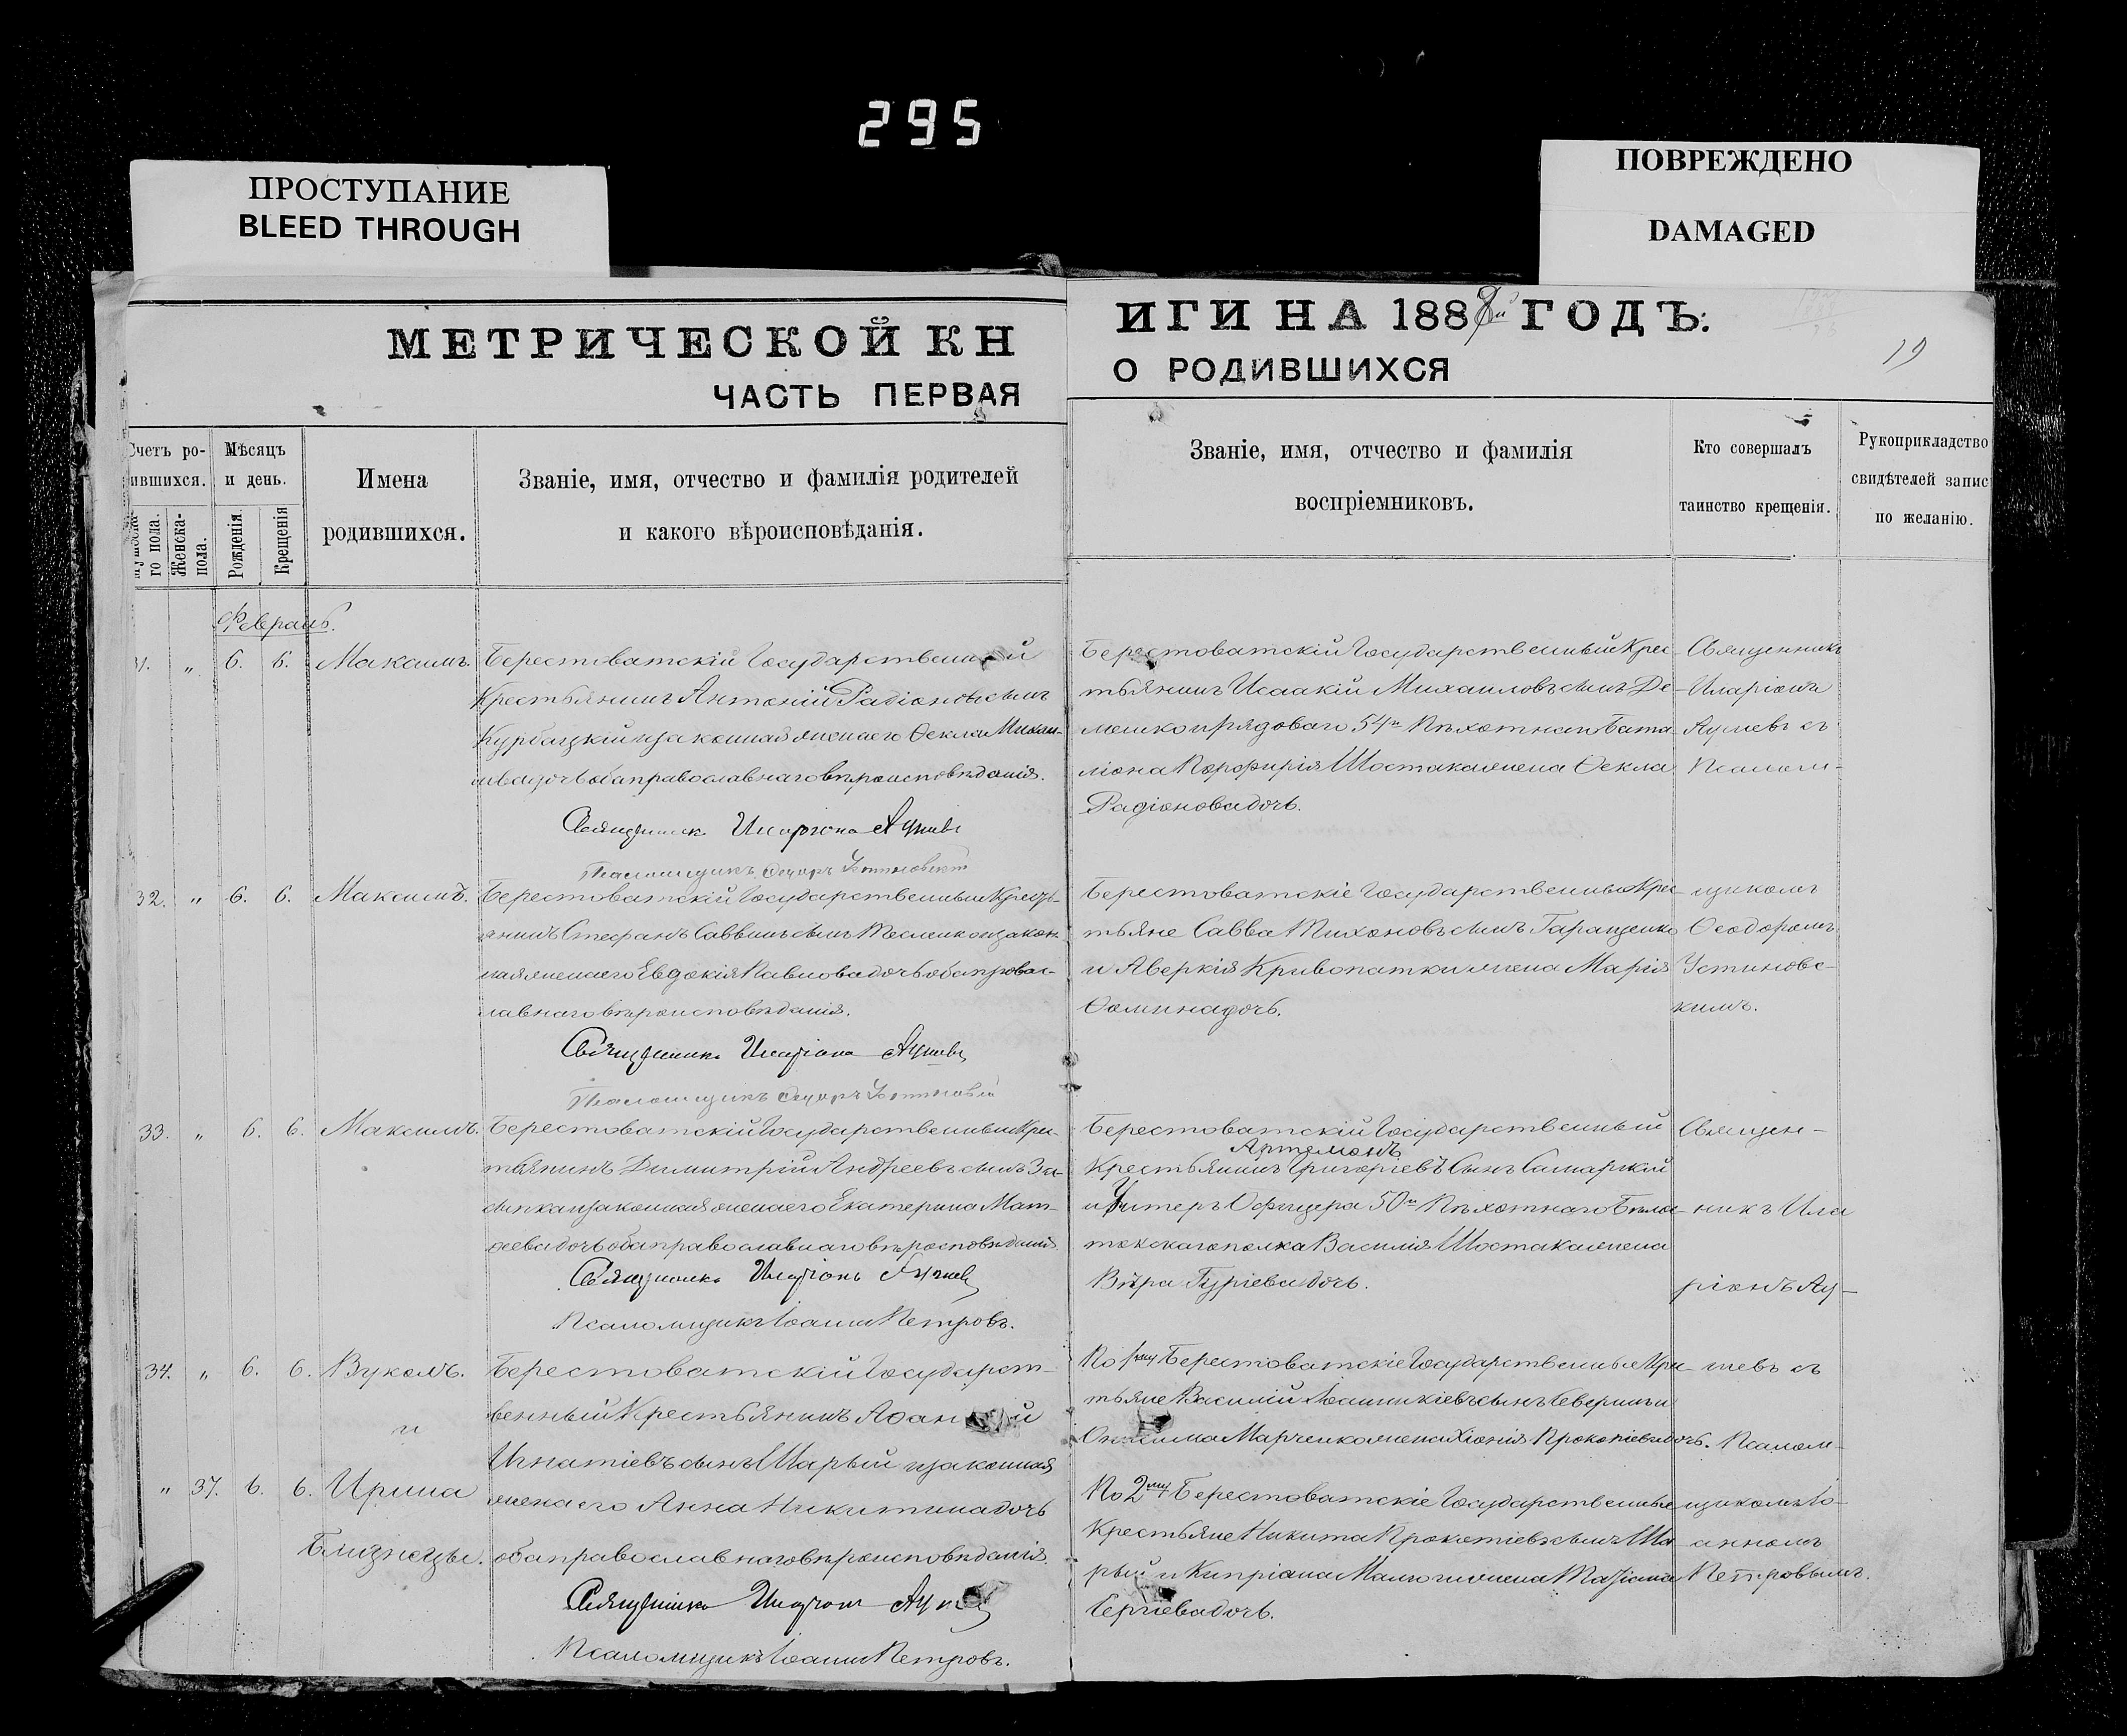 295
ПРОСТУПАНИЕ
BLEED THROUGH
ПОВРЕЖДЕНО
DAMAGED
МЕТРИЧЕСКОЙ КН
ЧАСТЬ ПЕРВАЯ
ИГИ НА 1888й ГОДЪ:
О РОДИВШИХСЯ
19
Счетъ ро-
ившихся.
го пола.
Женска-
пола.
Мѣсяцъ
и день.
Рожденія.
Крещенія
Имена
родившихся.
Званіе, имя, отчество и фамилія родителей
и какого вѣроисповѣданія.
Званіе, имя, отчество и фамилія
воспріемниковъ.
Кто совершалъ
таинство крещенія.
Рукоприкладство
свидѣтелей запис
по желанію.
Февраль.
31. „ 6. 6. Максимъ.
Берестоватскій Государственный
Крестьянинъ Антоній Радіоновъ сынъ
Курбацкій и законная жена его Ѳекла Михаи-
лова дочь оба православнаго вѣроисповѣданія.
Священникъ Иларіонъ
Псаломщикъ Ѳеодоръ Устиновскій
Берестоватскій Государственный Крес
тьянинъ Исаакій Михаиловъ сынъ Де
мешко и рядоваго 54го Пѣхотнаго Бата
ліона Порфирія Шостака жена Ѳекла
Радіонова дочь.
Священникъ
Иларіонъ
съ
Псалом-
32. „ 6. 6. Максимъ.
Берестоватскій Государственный Кресть-
янинъ Стефанъ Саввинъ сынъ и закон-
ная жена его Евдокія Павлова дочь оба правос-
лавнаго вѣроисповѣданія.
Священникъ Иларіонъ
Псаломщикъ Ѳеодоръ Устиновскій
Берестоватскіе Государственные Крес
тьяне Савва Тихоновъ сынъ Таращенко
и Аверкія Кривопатки жена Марія
Ѳомина дочь.
щикомъ
Ѳеодоромъ
Устиновс-
кимъ.
33. „ 6. 6. Максимъ.
Берестоватскій Государственный Крес-
тьянинъ Димитрій Андреевъ сынъ За-
и законная жена его Екатерина Мат-
ѳеева дочь оба православнаго вѣроисповѣданія.
Священникъ Иларіонъ
Псаломщикъ Іоаннъ Петровъ.
Берестоватскій Государственный
Артемонъ
Крестьянинъ Григоріевъ Сынъ Самарскій
и Унтеръ Офицера 50го Пѣхотнаго Бѣлос
токскаго полка Василія Шостака жена
Вѣра Гуріева дочь.
Священ-
никъ Ила
ріонъ
34. „ 6. 6. Вуколъ.
и
„ 37. 6. 6. Ирина
Близнецы.
Берестоватскій Государст-
венный Крестьянинъ
Игнатіевъ сынъ Шарый и законная
жена его Анна Никитина дочь
оба православнаго вѣроисповѣданія.
Священникъ Иларіонъ
Псаломщикъ Іоаннъ Петровъ.
По 1му Берестоватскіе Государственные Крес
тьяне Василій Іоанникіевъ сынъ Северинъ и
Онисима Марченка жена Хіонія Прокопіева дочь.
По 2му Берестоватскіе Государственные
Крестьяне Никита Прокопіевъ сынъ Ша
рый и Кипріана жена Татіана
Сергіева дочь.
съ
Псалом-
щикомъ Іо-
анномъ
Петровымъ.